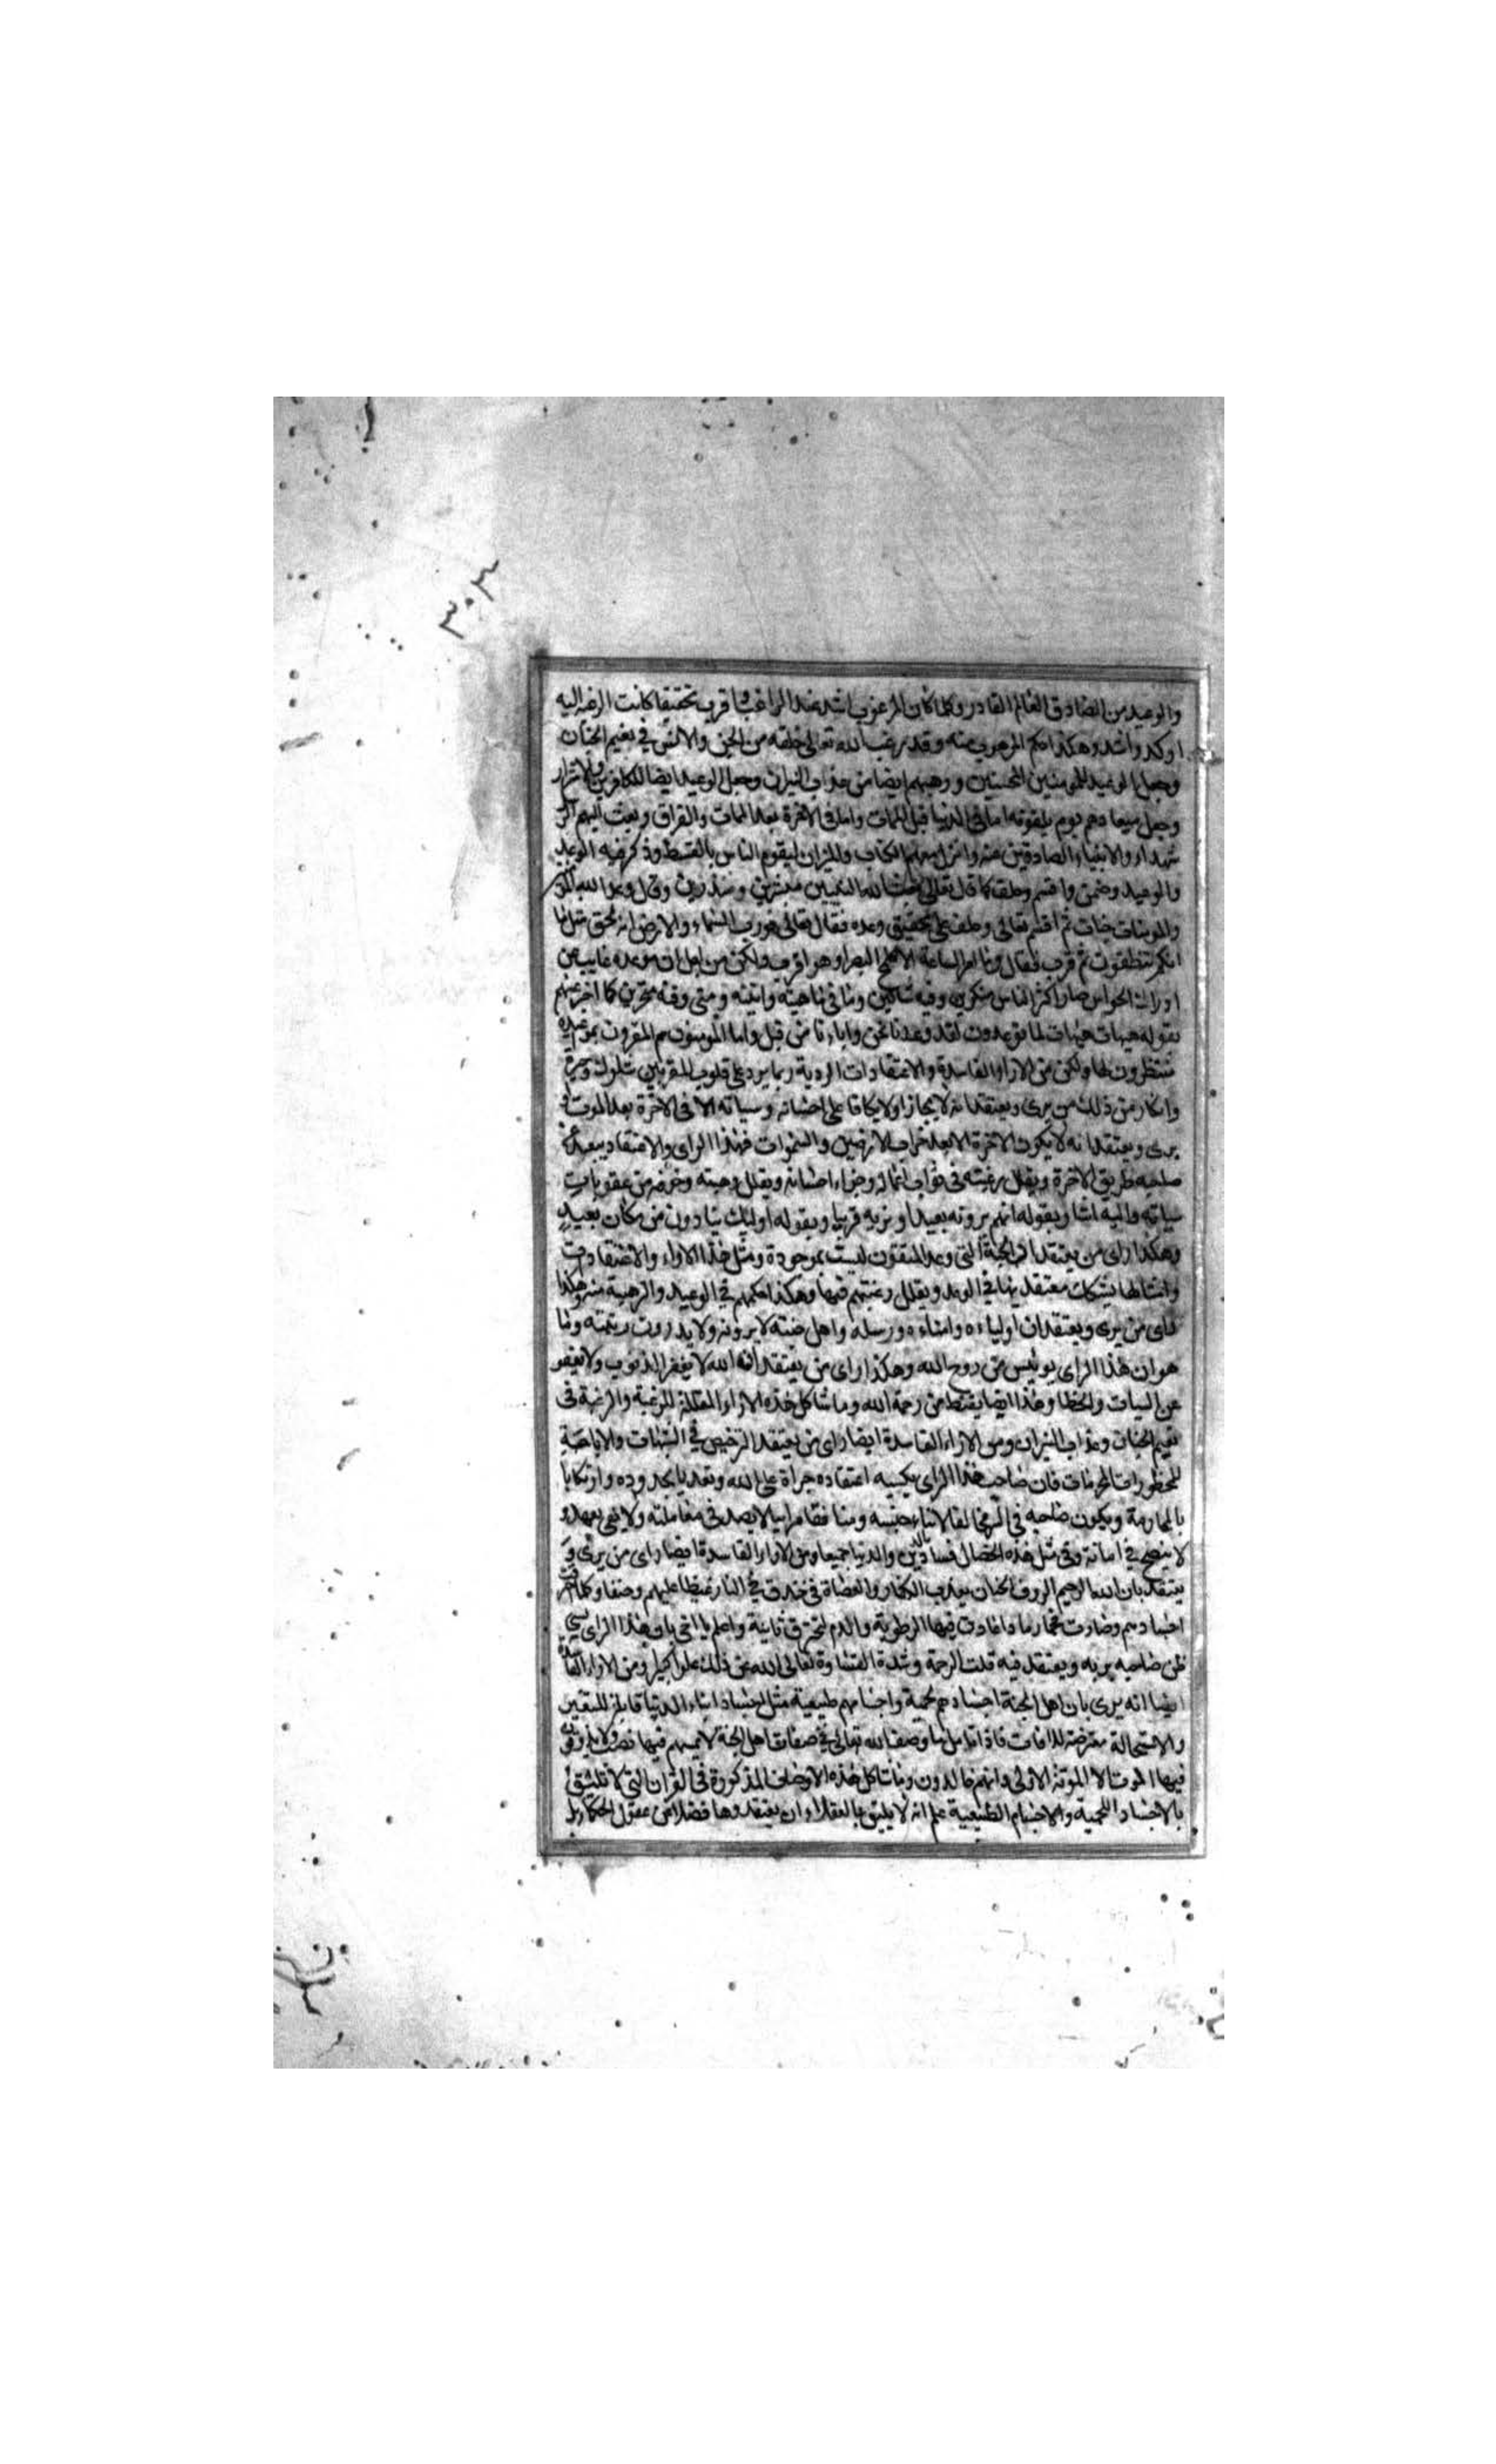 ٣٠٣
والوعيد من الصادق العالم القادر وكلما كان المرغوب اشد عند الراغب وقرب تحقيقا كانت الرغبة اليه
اوكد واشد وهكذا حكم المرهوب منه وقد رغب الله تعالى خلقه من الجن والانس في نعيم الجنان
وجعل الوعيد للمومنين المحسنين ورهبهم ايضا من عذاب النيران وجعل الوعيد ايضا للكافرين والاشرار
وجعل ميعادهم يوم يلقونه اما في الدنيا قبل الممات واما في الاخرة بعد الممات والفراق وبعث اليهم
شهداء والانبياء الصادقين عنه وانزل معهم الكتاب والميزان ليقوم الناس بالقسط وذكر فيه الوعد
والوعيد وضمن واقسم وحلف كما قال تعالى فبعث الله النبيين مبشرين ومنذرين وقال وعد الله
والمومنات جنات ثم اقسم تعالى وحلف على تحقيق وعده فقال تعالى فورب السماء والارض انه لحق مثل ما
انكم تنطقون ثم قرب فقال وما امر الساعة الا كلمح البصر او هو اقرب ولكن من اجل ان موعده غايب عن
ادراك الحواس صار اكثر الناس منكرين وفيه شاكين وما في ماهيته وانيته ومتى وقته متحرين كما اخبر عنهم
بقوله هيهات هيهات لما توعدون لقد وعدنا نحن واباءنا من قبل واما المومنون هم المقرون بموعده
منتظرون لها ولكن من الاراء الفاسدة والاعتقادات الردية ربما يرد على قلوب المقربين شكوك وحيرة
وانكار من ذلك من يرى ويعتقد انه لا يجازا ولا يكافا على احسانه وسياته الا في الاخرة بعد الموت
يرى ويعتقد انه لا يكون الاخرة الا بعد خراب الارضين والسموات فهذا الراى والاعتقاد يبعد عن
صاحبه طريق الاخرة ويقلل رغبته في ثواب اعماله وجزاء احسانه ويقلل رهبته وخوفه من عقوبات
سياته واليه اشار بقوله انهم يرونه بعيدا ونريه قريبا وبقوله اوليك ينادون من مكان بعيد
وهكذا راى من يعتقد ان الجنة التى وعد المتقون ليست بموجودة ومثل هذا الاراء والاعتقادات
وامثالها يشكك معتقديها في الوعد ويقلل رغبتهم فيها وهكذا حكمهم في الوعيد والرهبة منه وهكذا
راى من يرى ويعتقد ان اولياءه وانبياءه ورسله واهل جنته لا يرونه ولا يدرون ريتمته وما
هو ان هذا الراى يوئيس من روح الله وهكذا راى من يعتقد انه الله لا يغفر الذنوب ولا يعفو
عن السيات والخطا وهذا ايضا يقنط من رحمة الله وما شاكل هذه الاراء المقللة للرغبة والرهبة في
نعيم الجنان وعذاب النيران ومن الاراء الفاسدة ايضا راى من يعتقد الترخيص في الشبهات والاباحة
للمحظورات المحرمات فان صاحب هذا الراى يكسبه اعتقاده جراة على الله وتعديا بحدوده وارتكابا
بالمحارمة ويكون صاحبه في مخالفا لابناء جنسه ومنافقا مرايبا لا يصدق في معاملته ولا يفى بعهد و
لا ينصح في امانة وفي مثل هذه الخصال فساد الدين والدنيا جميعا ومن الاراء الفاسدة ايضا راى من يرى و
يعتقد بان الله الرحيم الروف الحنان يعذب الكفار والعصاة في خندق في النار غيظا عليهم وحنقا وكلما احرقت
اجسادهم وصارت فحما رمادا عادت فيها الرطوبة والدم لتحترق ثانية واعلم يا اخى بان هذا الراى يسيى
ظن صاحبه بربه ويعتقد فيه قلت الرحمة وشدة القساوة تعالى الله عن ذلك علوا كبيرا ومن الاراء الفاسدة
ايضا انه يرى بان اهل الجنة اجسادهم لحمية واجسامهم طبيعية مثل اجساد ابناء الدنيا قابلة للتغيير
والاستحالة معترضة للافات فاذا تامل ما وصف الله تعالى في صفات اهل الجنة لا يمسهم فيها نصب ولا يذوقون
فيها الموت الا الموتة الاولى وانهم خالدون وما شاكل هذه الاوصاف المذكورة في القران التى لا تليق
بالاجساد اللحمية والاجسام الطبيعية علم انه لا يليق بالعقلاء ان يعتقدوها فضلا عن عقول الحكماء بل